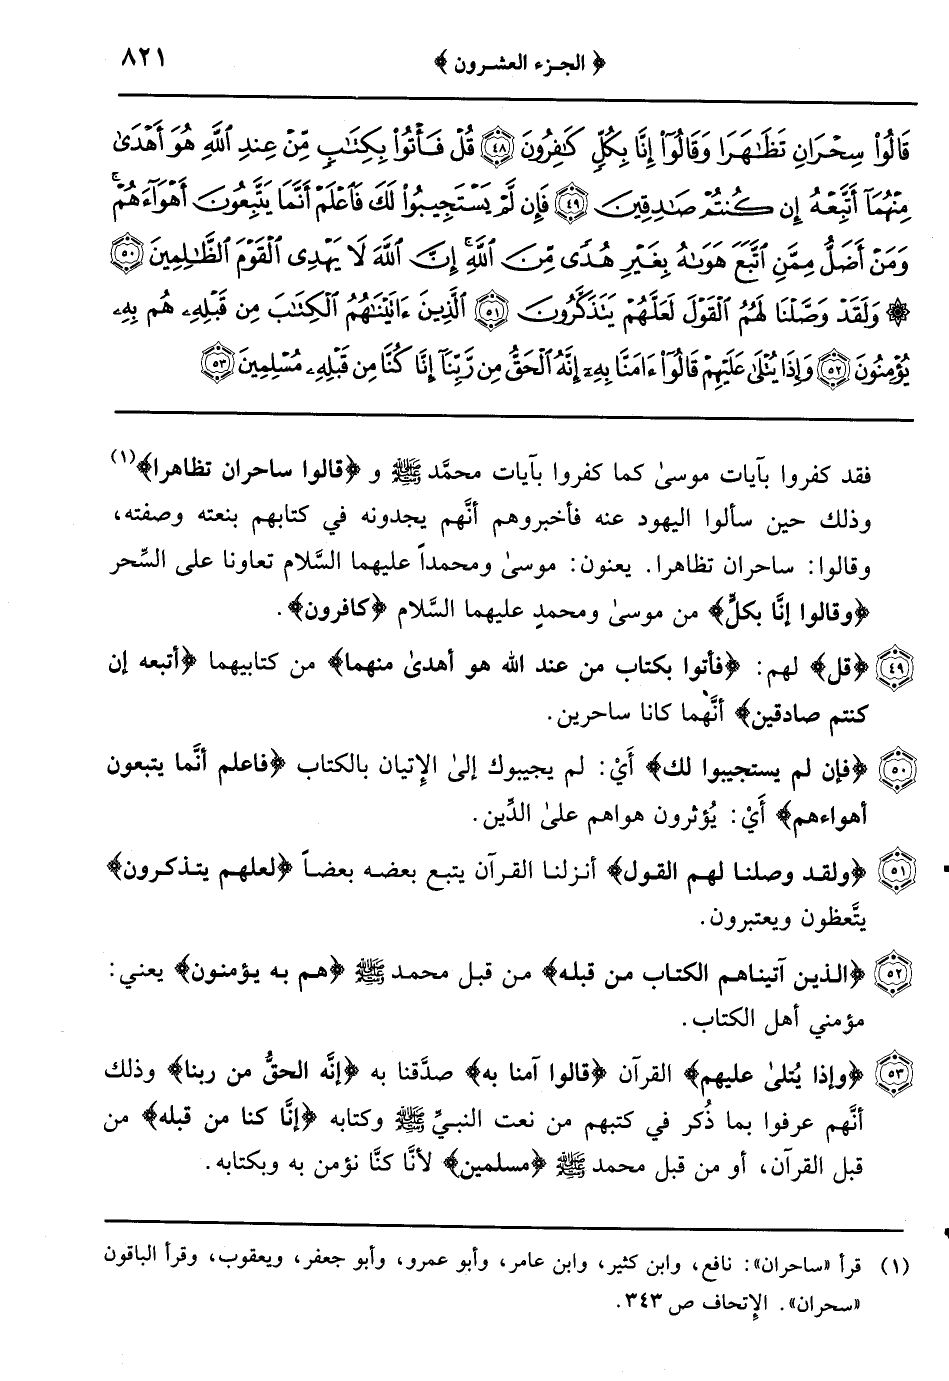 ﴿ الجزء العشرون ﴾ ٨٢١
قَالُوا۟ سِحْرَانِ تَظَـٰهَرَا وَقَالُوٓا۟ إِنَّا بِكُلٍّ كَـٰفِرُونَ ٤٨ قُلْ فَأْتُوا۟ بِكِتَـٰبٍ مِّنْ عِندِ ٱللَّهِ هُوَ أَهْدَىٰ
مِنْهُمَآ أَتَّبِعْهُ إِن كُنتُمْ صَـٰدِقِينَ ٤٩ فَإِن لَّمْ يَسْتَجِيبُوا۟ لَكَ فَٱعْلَمْ أَنَّمَا يَتَّبِعُونَ أَهْوَآءَهُمْ ۚ
وَمَنْ أَضَلُّ مِمَّنِ ٱتَّبَعَ هَوَىٰهُ بِغَيْرِ هُدًى مِّنَ ٱللَّهِ ۚ إِنَّ ٱللَّهَ لَا يَهْدِى ٱلْقَوْمَ ٱلظَّـٰلِمِينَ ٥٠
۞ وَلَقَدْ وَصَّلْنَا لَهُمُ ٱلْقَوْلَ لَعَلَّهُمْ يَتَذَكَّرُونَ ٥١ ٱلَّذِينَ ءَاتَيْنَـٰهُمُ ٱلْكِتَـٰبَ مِن قَبْلِهِۦ هُم بِهِۦ
يُؤْمِنُونَ ٥٢ وَإِذَا يُتْلَىٰ عَلَيْهِمْ قَالُوٓا۟ ءَامَنَّا بِهِۦٓ إِنَّهُ ٱلْحَقُّ مِن رَّبِّنَآ إِنَّا كُنَّا مِن قَبْلِهِۦ مُسْلِمِينَ ٥٣
فقد كفروا بآيات موسىٰ كما كفروا بآيات محمَّد ﷺ و ﴿قالوا ساحران تظاهرا﴾(١)
وذلك حين سألوا اليهود عنه فأخبروهم أنَّهم يجدونه في كتابهم بنعته وصفته،
وقالوا: ساحران تظاهرا. يعنون: موسىٰ ومحمداً عليهما السَّلام تعاونا على السِّحر
﴿وقالوا إنَّا بكلٍّ﴾ من موسىٰ ومحمدٍ عليهما السَّلام ﴿كافرون﴾.
٤٩ ﴿قل﴾ لهم: ﴿فأتوا بكتاب من عند الله هو أهدىٰ منهما﴾ من كتابيهما ﴿أتبعه إن
كنتم صادقين﴾ أنَّهما كانا ساحرين.
٥٠ ﴿فإن لم يستجيبوا لك﴾ أَيْ: لم يجيبوك إلىٰ الإِتيان بالكتاب ﴿فاعلم أنَّما يتبعون
أهواءهم﴾ أَيْ: يُؤثرون هواهم علىٰ الدِّين.
٥١ ﴿ولقد وصلنا لهم القول﴾ أنزلنا القرآن يتبع بعضه بعضاً ﴿لعلهم يتذكرون﴾
يتَّعظون ويعتبرون.
٥٢ ﴿الذين آتيناهم الكتاب من قبله﴾ من قبل محمد ﷺ ﴿هم به يؤمنون﴾ يعني:
مؤمني أهل الكتاب.
٥٣ ﴿وإذا يُتلىٰ عليهم﴾ القرآن ﴿قالوا آمنا به﴾ صدَّقنا به ﴿إنَّه الحقُّ من ربنا﴾ وذلك
أنَّهم عرفوا بما ذُكر في كتبهم من نعت النبيِّ ﷺ وكتابه ﴿إنَّا كنا من قبله﴾ من
قبل القرآن، أو من قبل محمد ﷺ ﴿مسلمين﴾ لأنَّا كنَّا نؤمن به وبكتابه.
(١) قرأ «ساحران»: نافع، وابن كثير، وابن عامر، وأبو عمرو، وأبو جعفر، ويعقوب، وقرأ الباقون
«سحران». الإِتحاف ص ٣٤٣.